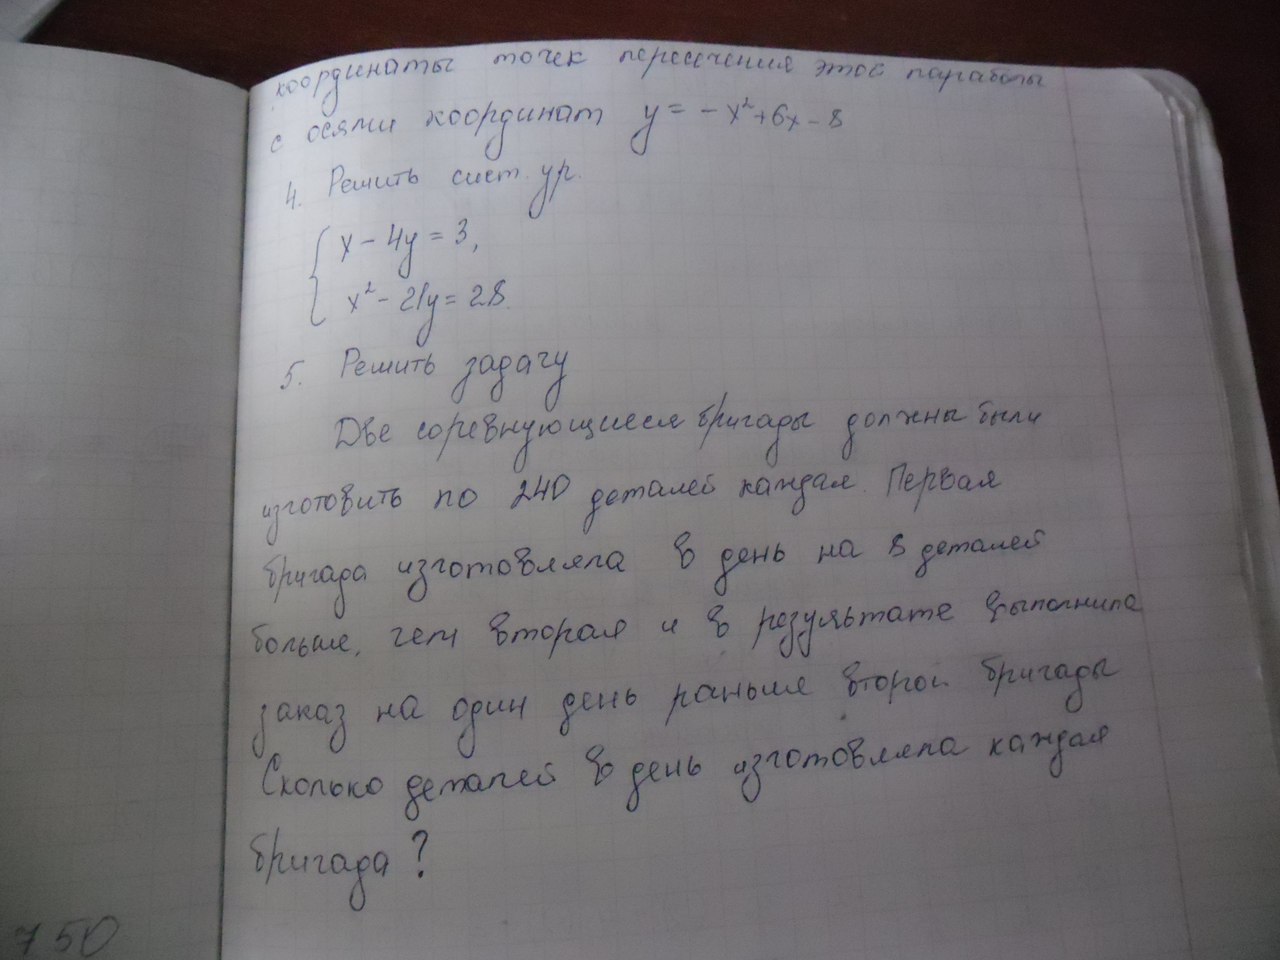 координаты точек пересечения этой параболы
с осями координат y = - x² + 6x - 8
4. Решить сист. ур.
{ x - 4y = 3,
x² - 21y = 28.
5. Решить задачу
Две соревнующиеся бригады должны были
изготовить по 240 деталей каждая. Первая
бригада изготовляла в день на 8 деталей
больше, чем вторая и в результате выполнила
заказ на один день раньше второй бригады
Сколько деталей в день изготовляла каждая
бригада?
750